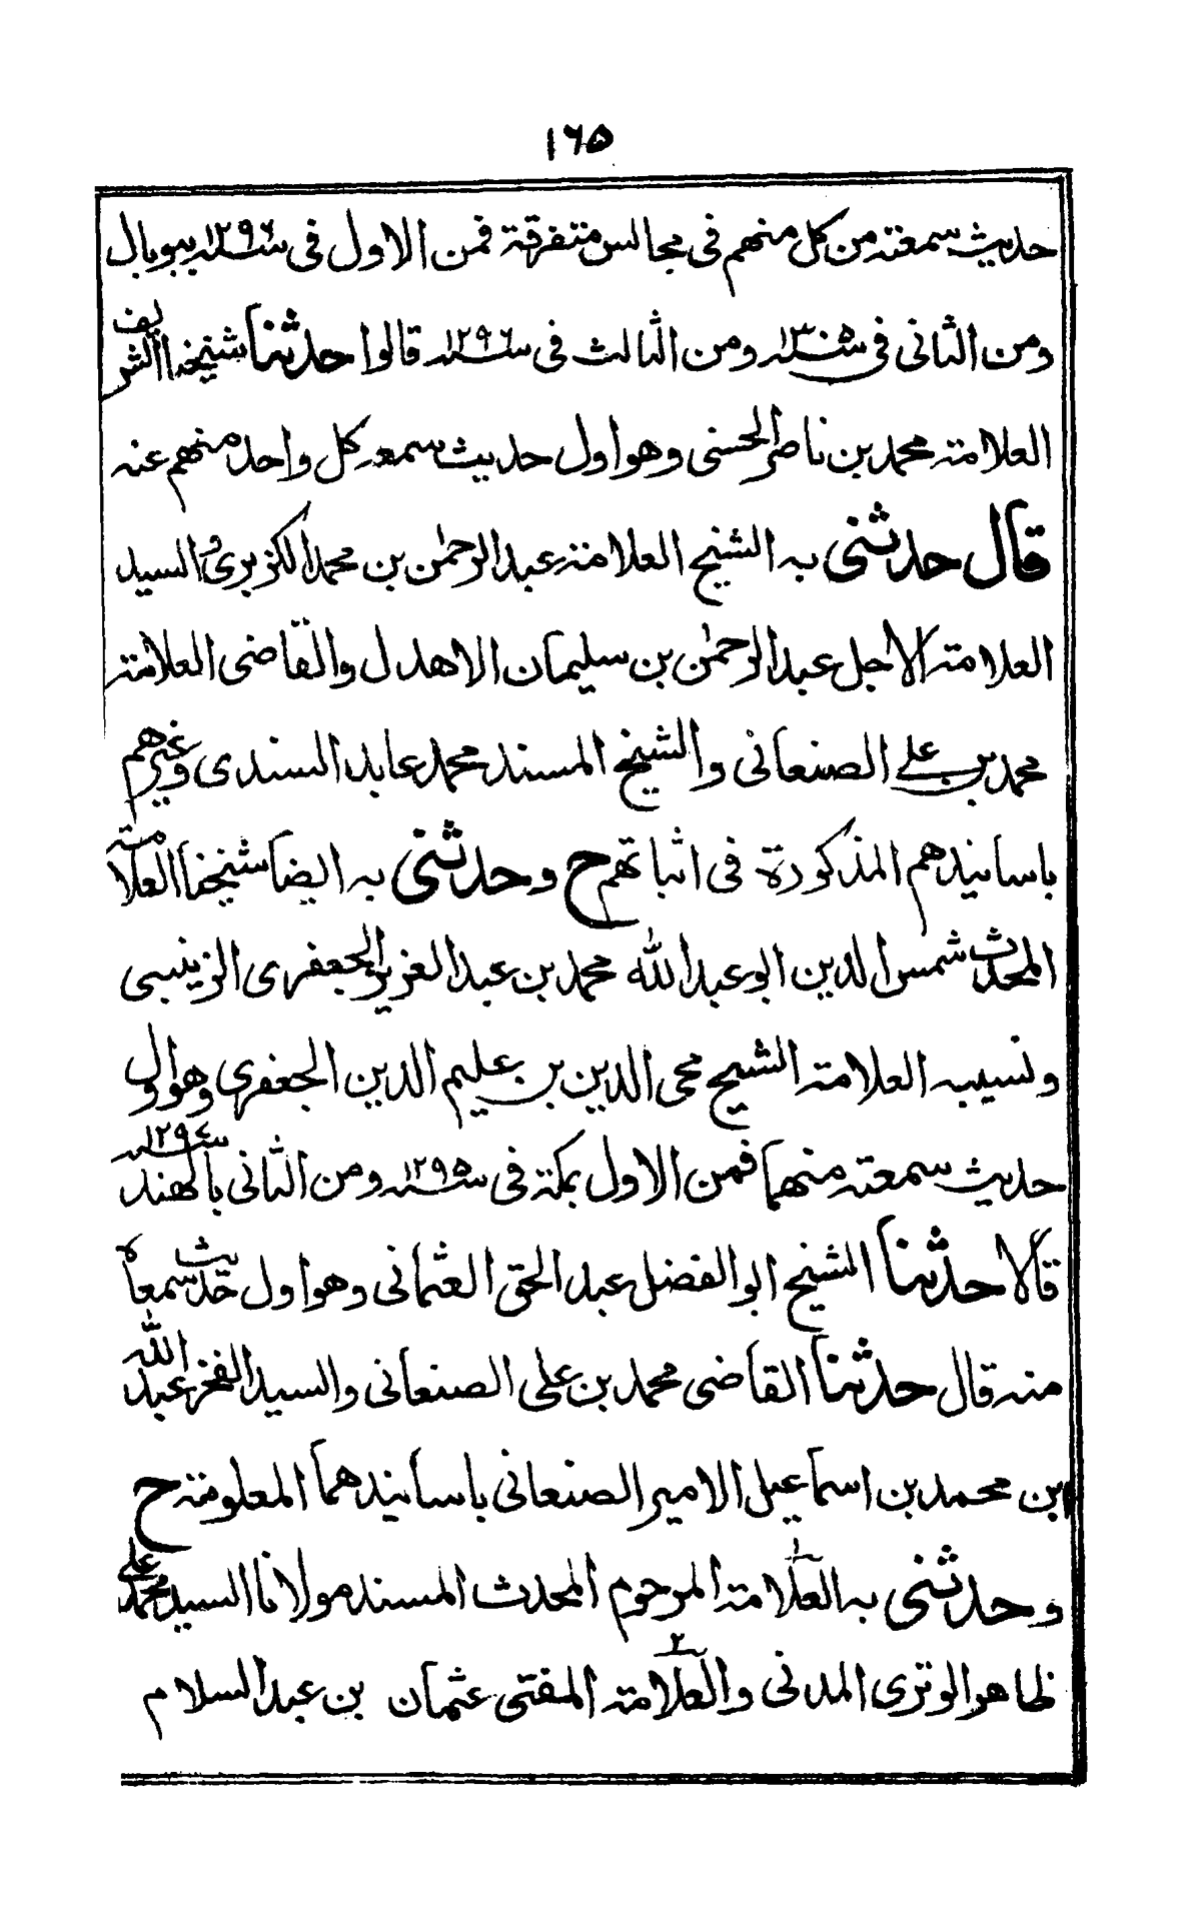 ١٦٥
حديث سمعته من كل منهم فى مجالس متفرقة فمن الاول فى سنة ١٢٩٦ ببوبال
ومن الثانى فى سنة ١٣٠٥ ومن الثالث فى سنة ١٢٩٦ قالوا حدثنا شيخنا الشريف
العلامة محمد بن ناصر الحسنى وهو اول حديث سمعه كل واحد منهم عنه
قال حدثنى به الشيخ العلامة عبد الرحمٰن بن محمد الكزبرى و السيد
العلامة الاجل عبد الرحمٰن بن سليمان الاهدل والقاضى العلامة
محمد بن على الصنعانى والشيخ المسند محمد عابد السندى وغيرهم
باسانيدهم المذكورة فى اثباتهم ح وحدثنى به ايضا شيخنا العلامة
المحدث شمس الدين ابو عبد الله محمد بن عبد العزيز الجعفرى الزينبى
ونسيبه العلامة الشيخ محى الدين بن عليم الدين الجعفرى وهو اول
حديث سمعته منهما فمن الاول بمكة فى سنة ١٢٩٥ ومن الثانى بالهند سنة ١٢٩٤
قالا حدثنا الشيخ ابو الفضل عبد الحق العثمانى وهو اول حديث سمعاه
منه قال حدثنا القاضى محمد بن على الصنعانى والسيد الفخر عبد الله
ابن محمد بن اسماعيل الامير الصنعانى باسانيدهما المعلومة ح
وحدثنى به العلامة ١ المرحوم المحدث المسند مولانا السيد محمد على
ظاهر الوترى المدنى والعلامة ٢ المفتى عثمان بن عبد السلام